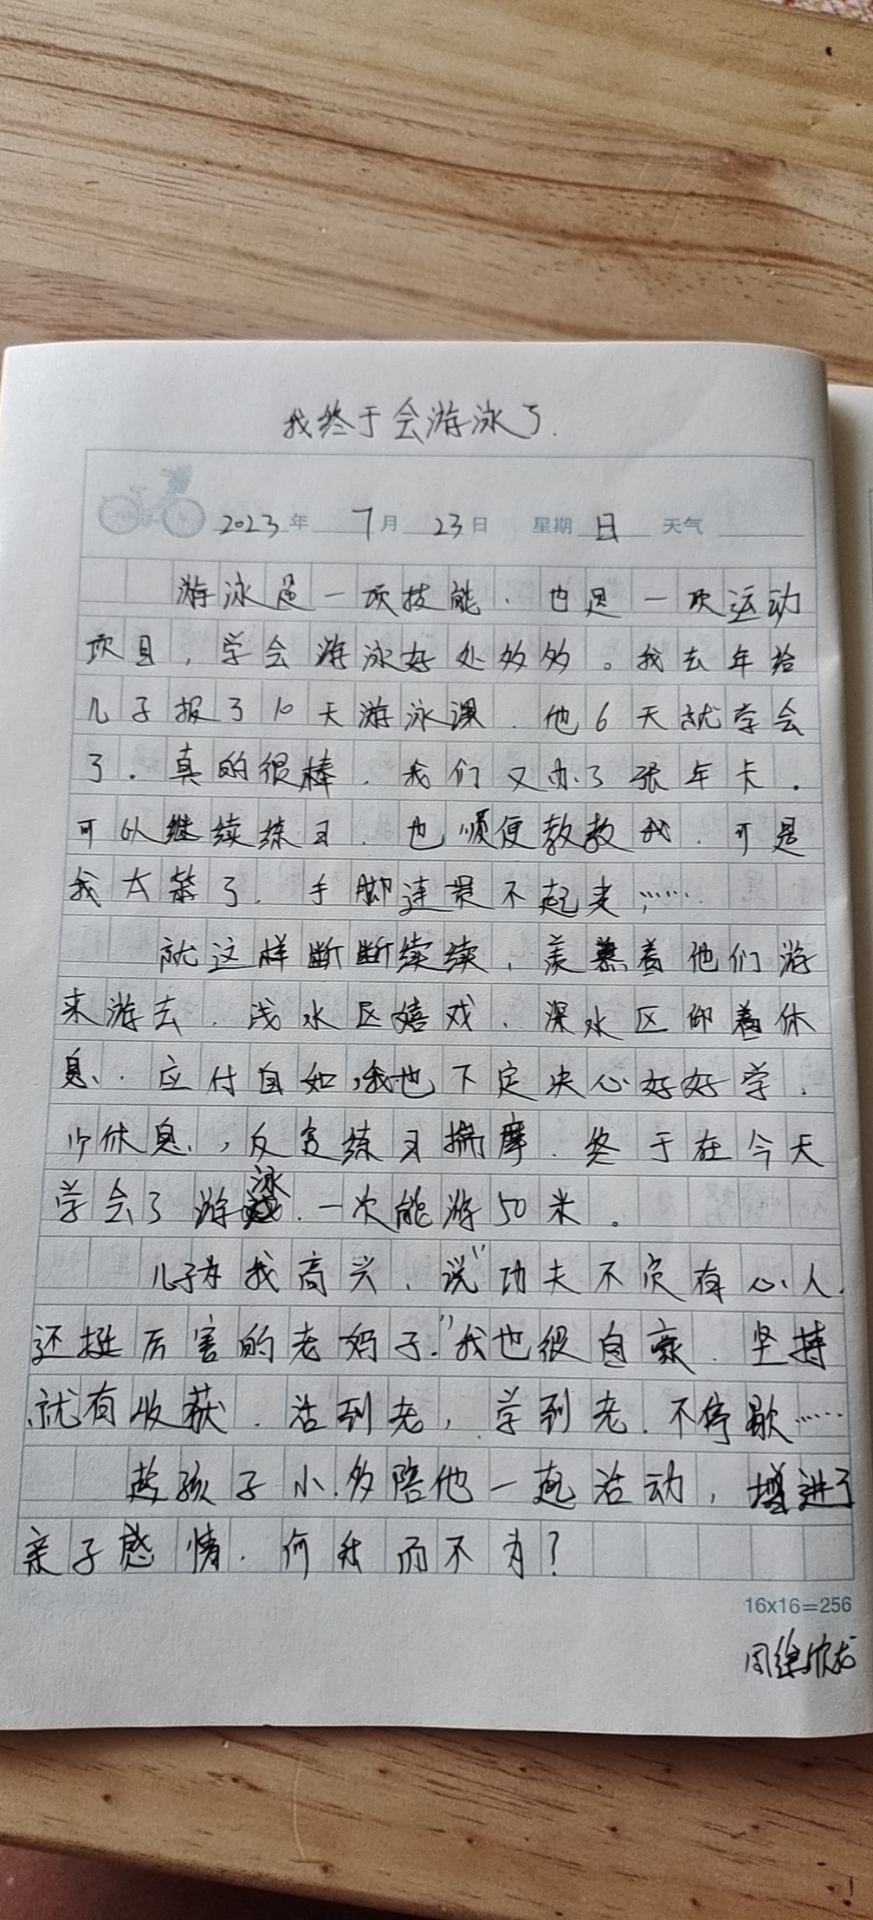 我终于会游泳了.
2023年 7月 23日 星期 日 天气
游泳是一项技能.也是一项运动
项目,学会游泳好处多多。我去年给
儿子报了10天游泳课.他6天就学会
了.真的很棒.我们又办了张年卡.
可以继续练习.也顺便教教我.可是
我太笨了.手脚连贯不起来……
就这样断断续续,羡慕着他们游
来游去.浅水区嬉戏.深水区仰着休
息.应付自如,我也下定决心好好学.
少休息,反复练习揣摩.终于在今天
学会了游泳.一次能游50米。
儿子为我高兴.说"功夫不负有心人.
还挺厉害的老妈子."我也很自豪.坚持
就有收获.活到老,学到老.不停歇……
趁孩子小.多陪他一起活动,增进了
亲子感情.何我而不为?
16x16=256